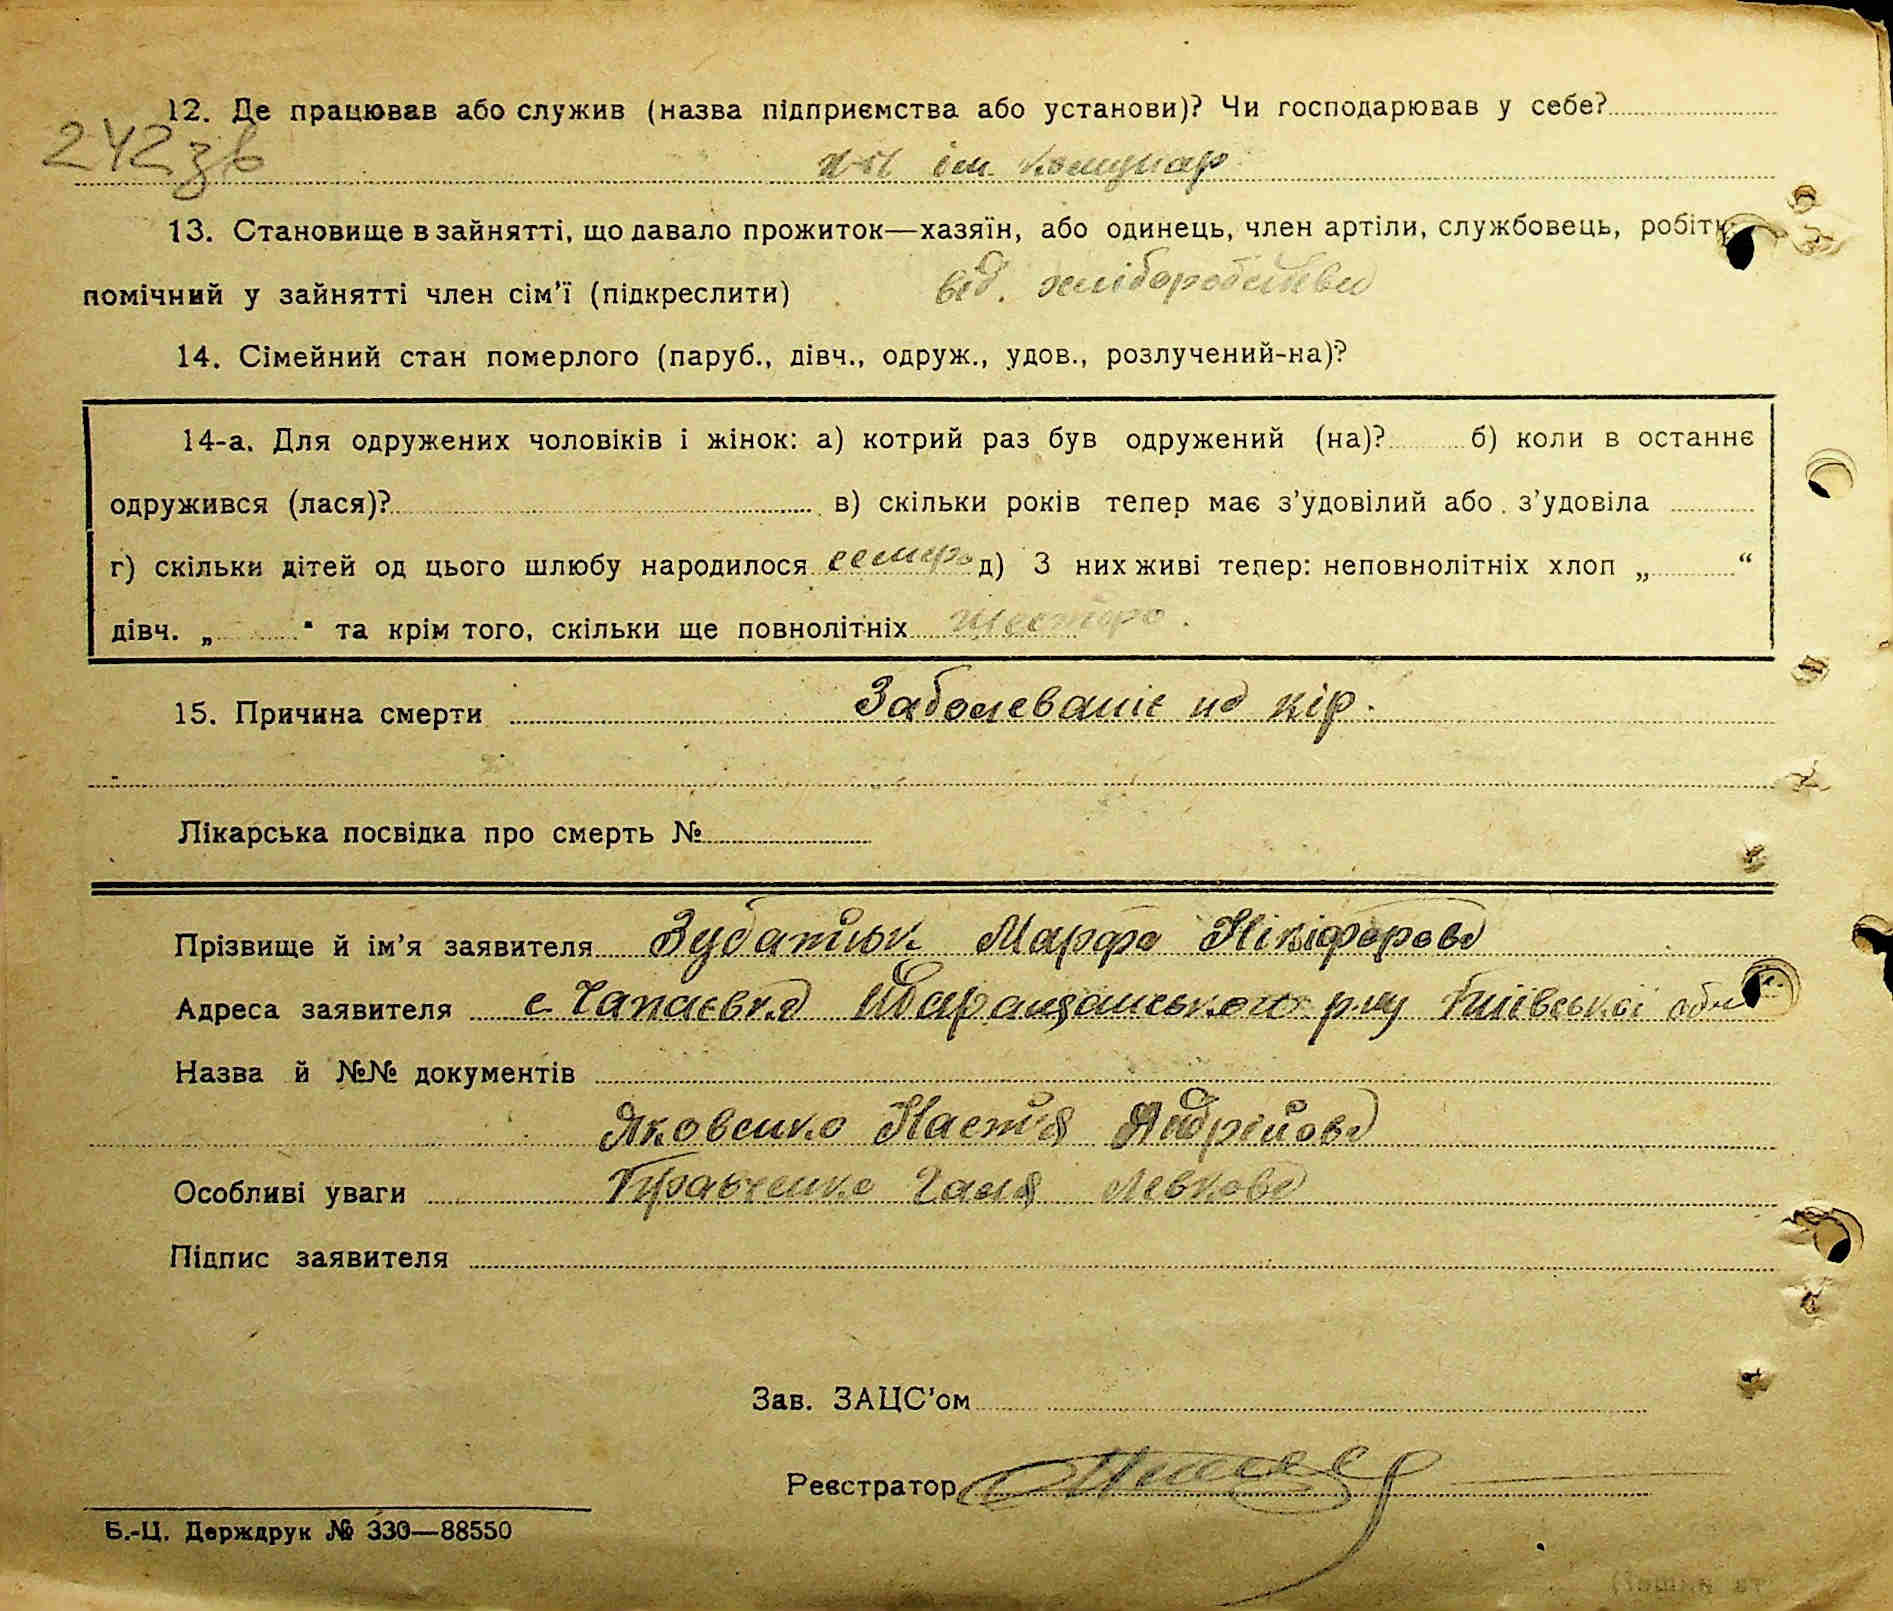 12. Де працював або служив (назва підприємства або установи)? Чи господарював у себе?
242зв
ім. комунар
13. Становище в зайнятті, що давало прожиток—хазяїн, або одинець, член артіли, службовець, робітн
помічний у зайнятті член сім'ї (підкреслити) від. хліборобства
14. Сімейний стан померлого (паруб., дівч., одруж., удов., розлучений-на)?
14-а. Для одружених чоловіків і жінок: а) котрий раз був одружений (на)? б) коли в останнє
одружився (лася)? в) скільки років тепер має з'удовілий або з'удовіла
г) скільки дітей од цього шлюбу народилося семеро д) З них живі тепер: неповнолітніх хлоп „ “
дівч. „ “ та крім того, скільки ще повнолітніх шестеро.
15. Причина смерти Заболеваніє на кір.
Лікарська посвідка про смерть №
Прізвище й ім'я заявителя Зубатюк Марфа Нікіфорова
Адреса заявителя с. Чапаєвка р-ну Київської обл
Назва й №№ документів
Яковенко Настя Андрійова
Особливі уваги Кравченко Галя Левкова
Підпис заявителя
Зав. ЗАЦС'ом
Реєстратор
Б.-Ц. Держдрук № 330—88550